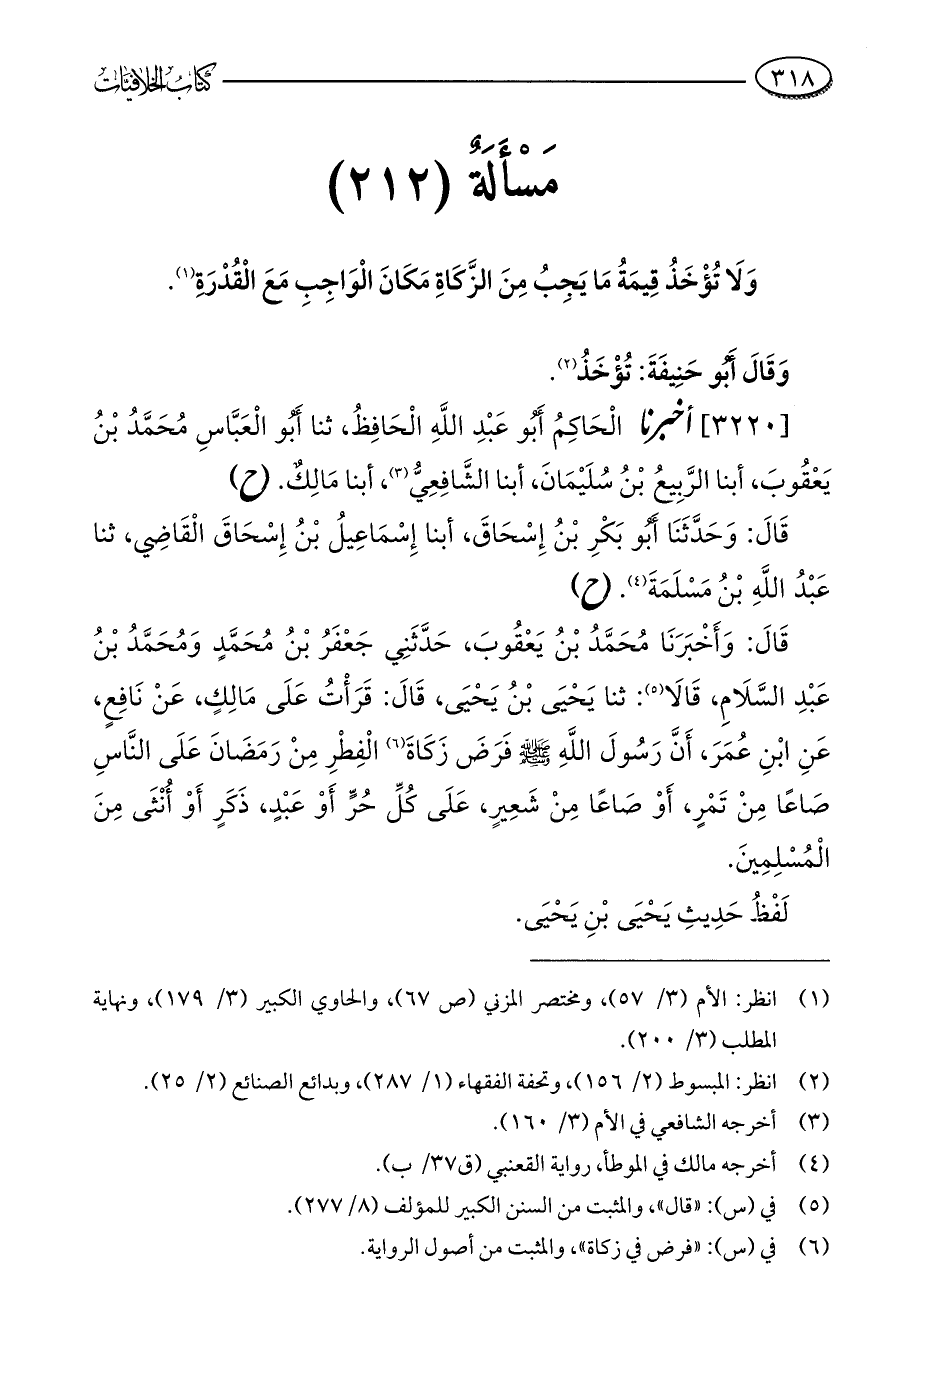 ٣١٨
كتاب الخلافيات
مَسْأَلَةٌ (٢١٢)
وَلَا تُؤْخَذُ قِيمَةُ مَا يَجِبُ مِنَ الزَّكَاةِ مَكَانَ الْوَاجِبِ مَعَ الْقُدْرَةِ(١).
وَقَالَ أَبُو حَنِيفَةَ: تُؤْخَذُ(٢).
[٣٢٢٠] أخبرنا الْحَاكِمُ أَبُو عَبْدِ اللَّهِ الْحَافِظُ، ثنا أَبُو الْعَبَّاسِ مُحَمَّدُ بْنُ
يَعْقُوبَ، أبنا الرَّبِيعُ بْنُ سُلَيْمَانَ، أبنا الشَّافِعِيُّ(٣)، أبنا مَالِكٌ. (ح)
قَالَ: وَحَدَّثَنَا أَبُو بَكْرِ بْنُ إِسْحَاقَ، أبنا إِسْمَاعِيلُ بْنُ إِسْحَاقَ الْقَاضِي، ثنا
عَبْدُ اللَّهِ بْنُ مَسْلَمَةَ(٤). (ح)
قَالَ: وَأَخْبَرَنَا مُحَمَّدُ بْنُ يَعْقُوبَ، حَدَّثَنِي جَعْفَرُ بْنُ مُحَمَّدٍ وَمُحَمَّدُ بْنُ
عَبْدِ السَّلَامِ، قَالَا(٥): ثنا يَحْيَى بْنُ يَحْيَى، قَالَ: قَرَأْتُ عَلَى مَالِكٍ، عَنْ نَافِعٍ،
عَنِ ابْنِ عُمَرَ، أَنَّ رَسُولَ اللَّهِ ﷺ فَرَضَ زَكَاةَ(٦) الْفِطْرِ مِنْ رَمَضَانَ عَلَى النَّاسِ
صَاعًا مِنْ تَمْرٍ، أَوْ صَاعًا مِنْ شَعِيرٍ، عَلَى كُلِّ حُرٍّ أَوْ عَبْدٍ، ذَكَرٍ أَوْ أُنْثَى مِنَ
الْمُسْلِمِينَ.
لَفْظُ حَدِيثِ يَحْيَى بْنِ يَحْيَى.
(١) انظر: الأم (٣/ ٥٧)، ومختصر المزني (ص ٦٧)، والحاوي الكبير (٣/ ١٧٩)، ونهاية
المطلب (٣/ ٢٠٠).
(٢) انظر: المبسوط (٢/ ١٥٦)، وتحفة الفقهاء (١/ ٢٨٧)، وبدائع الصنائع (٢/ ٢٥).
(٣) أخرجه الشافعي في الأم (٣/ ١٦٠).
(٤) أخرجه مالك في الموطأ، رواية القعنبي (ق٣٧/ ب).
(٥) في (س): «قال»، والمثبت من السنن الكبير للمؤلف (٨/ ٢٧٧).
(٦) في (س): «فرض في زكاة»، والمثبت من أصول الرواية.